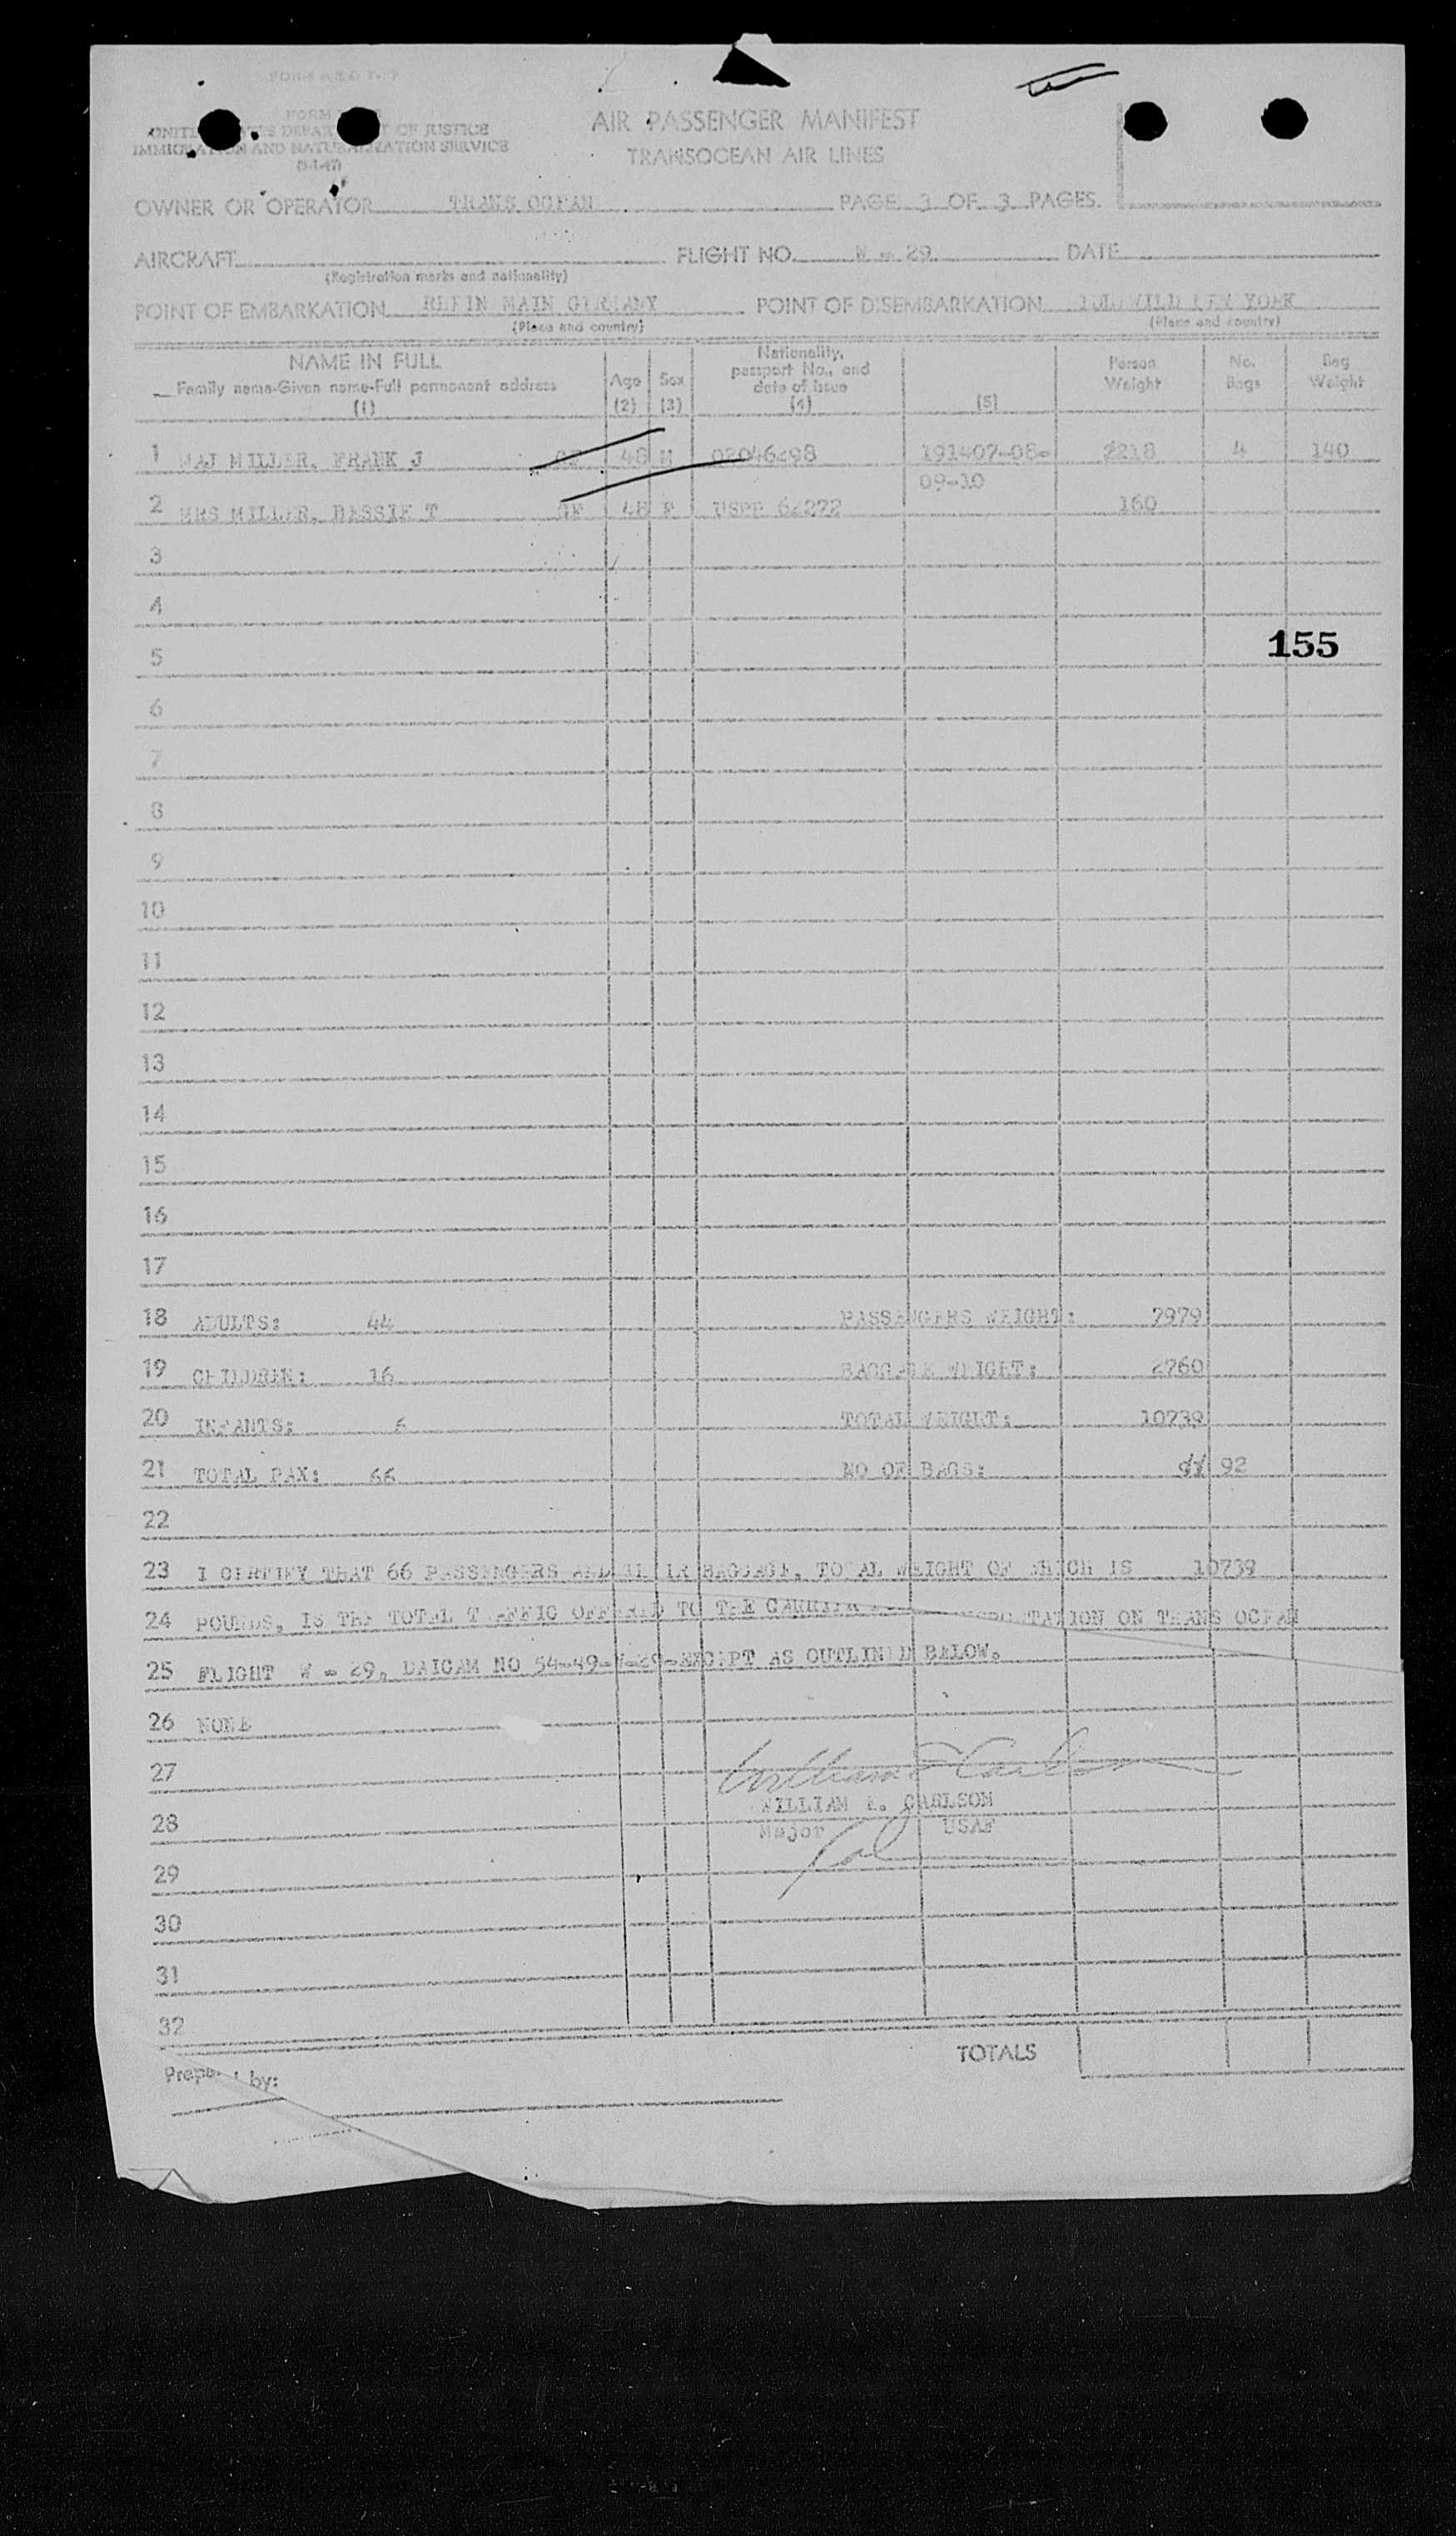 AIR PASSENGER MANIFEST
OF JUSTICE
IMMIGRATION AND NATURALIZATION SERVICE
TRANSOCEAN AIR LINES
OWNER OR OPERATOR TRANS OCEAN PAGE 3 OF 3 PAGES.
AIRCRAFT FLIGHT NO. W - 29 DATE
(Registration marks and nationality)
POINT OF EMBARKATION MAIN GERMANY POINT OF DISEMBARKATION NEW YORK
(Place and country) (Place and country)
NAME IN FULL
Family name-Given name-Full permanent address
(1)
Age
(2)
Sex
(3)
Nationality,
passport No., and
date of issue
(4)
(5)
Person
Weight
No.
Bags
Bag
Weight
1 MAJ MILLER, FRANK J AF 48 M 02046298 191407-08- 2218 4 140
09-10
2 MRS MILLER, BESSIE T AF 48 F USPP 62272 160
3
4
155
5
6
7
8
9
10
11
12
13
14
15
16
17
18 ADULTS: 44 PASSENGERS WEIGHT: 7979
19 CHILDREN: 16 BAGGAGE WEIGHT: 2760
20 INFANTS: 6 TOTAL WEIGHT: 10739
21 TOTAL PAX: 66 NO OF BAGS: 92
22
23 I CERTIFY THAT 66 PASSENGERS AND THEIR BAGGAGE, TOTAL WEIGHT OF WHICH IS 10739
24 POUNDS, IS THE TOTAL TRAFFIC OFFERED TO THE CARRIER ON TRANS OCEAN
25 FLIGHT W - 29, DAICAM NO 54-49-W-29-EXCEPT AS OUTLINED BELOW.
26 NONE
27 William E Carlson
WILLIAM E. CARLSON
28 Major USAF
29
30
31
32
TOTALS
by: